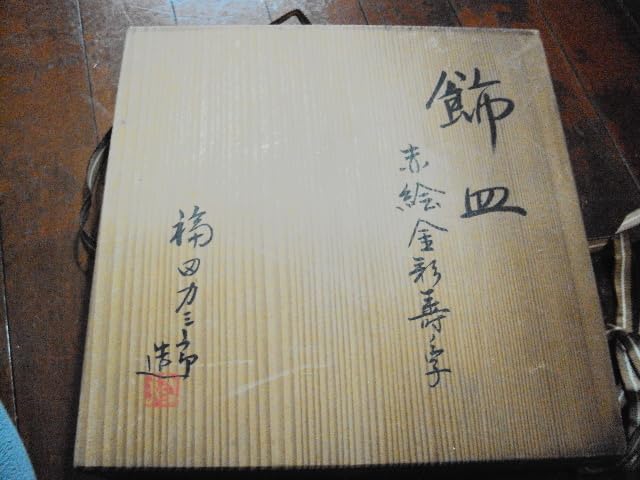 飾皿
赤絵金彩寿字
福田力三郎
造